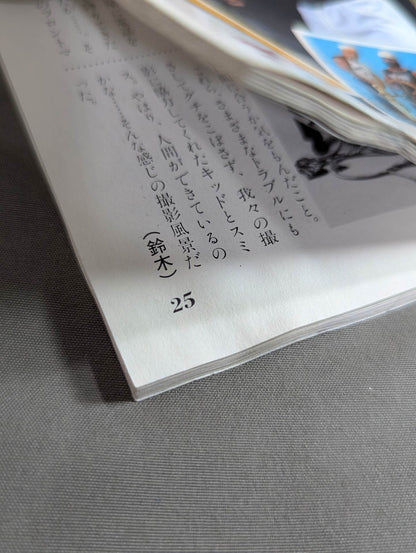 合うか気をもんだこと。
さまざまなトラブルにも
さしてグチをこぼさず、我々の撮
影に協力してくれたキッドとスミ
ス。やはり、人間ができているの
かな……そんな感じの撮影風景だ
った。
(鈴木)
25